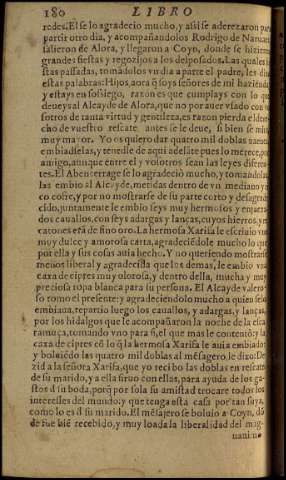 180 LIBRO
redes. El se lo agradecio mucho, y assi se aderezaron para
partir otro dia, y acompañandolos Rodrigo de Naruaez
salieron de Alora, y llegaron a Coyn, donde se hizieron
grandes fiestas y regozijos a los desposados. Las quales
stas passadas, tomádolos vn dia a parte el padre, les dixo
estas palabras: Hijos, aora q̃ soys señores de mi hazienda
y estays en sosiego, razon es que cumplays con lo que
deueys al Alcayde de Alora, que no por auer vsado con
sotros de tanta virtud y gentileza, es razon pierda el dere-
cho de vuestro rescate antes se le deue, si bien se mira,
muy mayor. Yo os quiero dar quatro mil doblas zaenes
embiadselas, y tenedle de aqui adeláte pues lo merece, por
amigo, aunque entre el y vosotros sean las leyes diferen-
tes. El Abencerrage se lo agradeció mucho, y tomandolas
las embio al Alcayde, metidas dentro de vn mediano y ri
co cofre, y por no mostrarse de su parte corto y desagrade
cido, juntamente le embio seys muy hermosos y enjaeza
dos cauallos, con seys adargas y lanças, cuyos hierros, y re
catones erã de fino oro. La hermosa Xarifa le escriuio vna
muy dulce y amorosa carta, agradeciédole mucho lo que
por ella y sus cosas auia hecho. Y no queriendo mostrarse
menos liberal y agradecida que los demas, le embio vna
caxa de cipres muy olorosa, y dentro della, mucha y muy
preciosa ropa blanca para su persona. El Alcayde valero-
so tomo el presente: y agradeciendolo mucho a quien se lo
embiaua, repartio luego los cauallos, y adargas, y lanças,
por los hidalgos que le acompañaron la noche de la esca
ramuça, tomando vno para si, el que mas le contentó: y la
caxa de cipres cõ lo q̃ la hermosa Xarifa le auia embiado:
y boluiédo las quatro mil doblas al mésagero, le dixo: De
zid a la señora Xarifa, que yo recibo las doblas en rescate
de su marido, y a ella siruo con ellas, para ayuda de los ga-
stos d̃ su boda, porq̃ por sola su amistad trocare todos los
interesses del mundo: y que tenga esta casa por tan suya,
como lo es d̃ su marido. El mésajero se boluio a Coyn, dõ
de fue bié recebido, y muy loada la liberalidad del mag-
nanimo